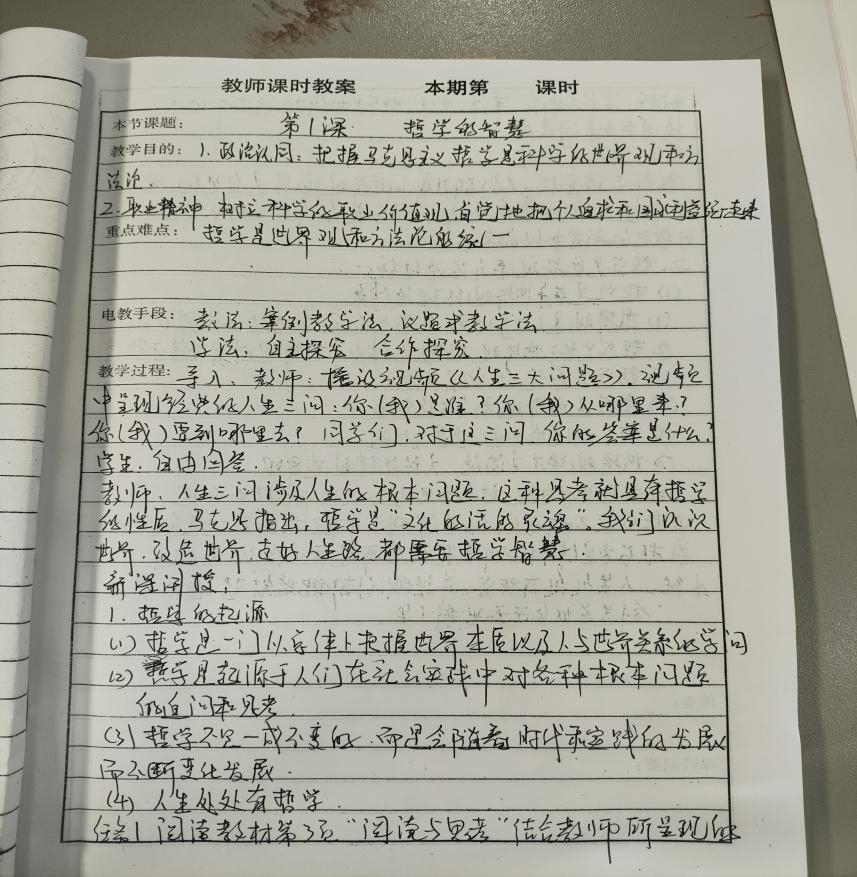 教师课时教案 本期第 课时
本节课题: 第1课 哲学的智慧
教学目的: 1. 政治认同: 把握马克思主义哲学是科学的世界观和方
法论.
2. 职业精神 树立科学的职业价值观, 自觉地把个人追求和国家利益统一起来
重点难点: 哲学是世界观和方法论的统一
电教手段: 教法: 案例教学法、议题式教学法
学法: 自主探究 合作探究
教学过程: 导入、教师: 播放视频《人生三大问题》. 视频
中呈现经典的人生三问: 你(我)是谁? 你(我)从哪里来?
你(我)要到哪里去? 同学们, 对于这三问, 你的答案是什么?
学生. 自由回答.
教师. 人生三问涉及人生的根本问题. 这种思考就具有哲学
的性质. 马克思指出, 哲学是“文化的活的灵魂”。我们认识
世界、改造世界 走好人生路 都需要哲学智慧.
新课讲授:
1. 哲学的起源
(1) 哲学是一门从总体上把握世界本质以及人与世界关系的学问
(2) 哲学是起源于人们在社会实践中对各种根本问题
的追问和思考
(3) 哲学不是一成不变的. 而是会随着时代和实践的发展
而不断变化发展.
(4) 人生处处有哲学.
任务1 阅读教材第3页“阅读与思考”结合教师所呈现的